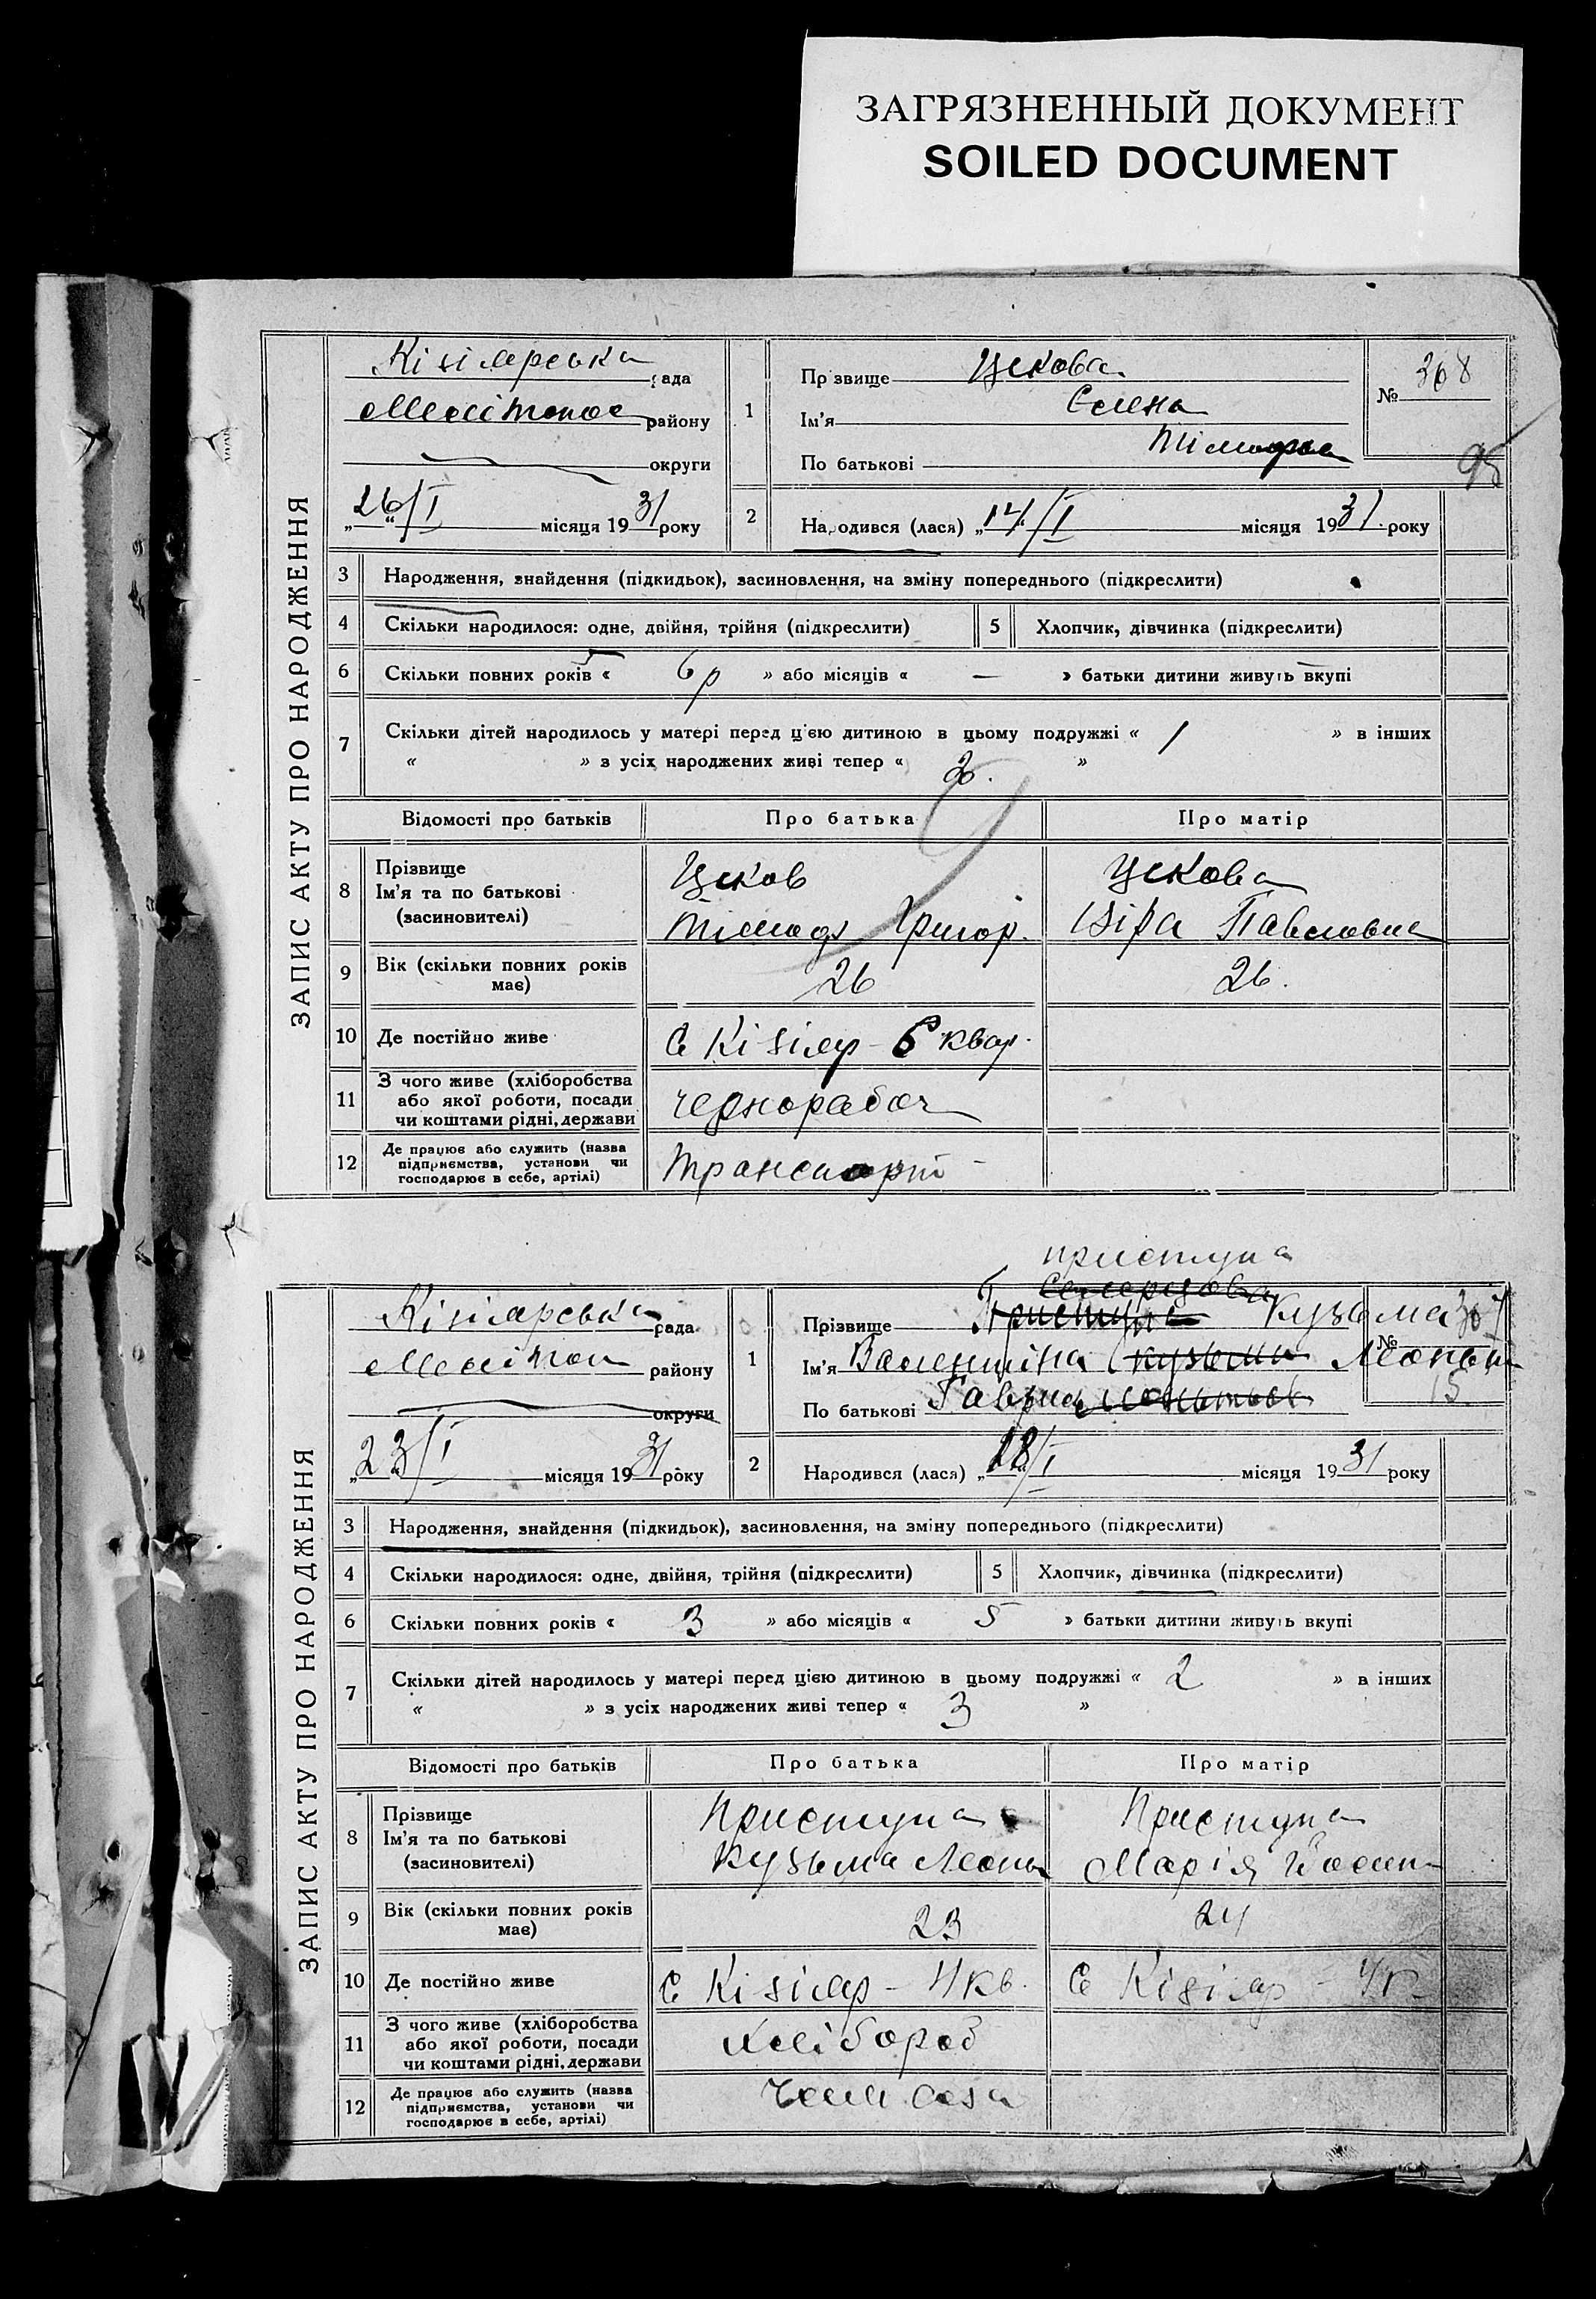 ЗАГРЯЗНЕННЫЙ ДОКУМЕНТ
SOILED DOCUMENT
ЗАПИС АКТУ ПРО НАРОДЖЕННЯ
Кізілярська рада
району
округи
„26“/I місяця 1931 року
1
Прізвище Цекова
Ім'я Єлена
По батькові
№ 368
95
2
Народився (лася) „14“/I місяця 1931 року
3 Народження, знайдення (підкидьок), засиновлення, на зміну попереднього (підкреслити)
4 Скільки народилося: одне, двійня, трійня (підкреслити)
5 Хлопчик, дівчинка (підкреслити)
6 Скільки повних років « 6 р » або місяців « — » батьки дитини живуть вкупі
7 Скільки дітей народилось у матері перед цією дитиною в цьому подружжі « 1 » в інших
« » з усіх народжених живі тепер « 2. »
Відомості про батьків Про батька Про матір
8 Прізвище
Ім'я та по батькові
(засновителі)
Цеков
Григор.
Цекова
Віра Павловна
9 Вік (скільки повних років
має)
26
26.
10 Де постійно живе
С Кізіляр - 6 квар.
11 З чого живе (хліборобства
або якої роботи, посади
чи коштами рідні, держави
чернорабоч
12 Де працює або служить (назва
підприємства, установи чи
господарює в себе, артілі)
Транспорт -
ЗАПИС АКТУ ПРО НАРОДЖЕННЯ
Кізілярська рада
району
округи
„23“/I місяця 1931 року
Приступа
1
Прізвище Приступа Кузьма
Ім'я Валентина
По батькові
№
15.
2
Народився (лася) „18“/I місяця 1931 року
3 Народження, знайдення (підкидьок), засиновлення, на зміну попереднього (підкреслити)
4 Скільки народилося: одне, двійня, трійня (підкреслити)
5 Хлопчик, дівчинка (підкреслити)
6 Скільки повних років « 3 » або місяців « 5 » батьки дитини живуть вкупі
7 Скільки дітей народилось у матері перед цією дитиною в цьому подружжі « 2 » в інших
« » з усіх народжених живі тепер « 3 »
Відомості про батьків Про батька Про матір
8 Прізвище
Ім'я та по батькові
(засиновителі)
Приступа
Кузьма Леонт
Приступа
Марія Йосип
9 Вік (скільки повних років
має)
23
24
10 Де постійно живе
С Кізіляр - 4 кв.
С Кізіляр - 4 к
11 З чого живе (хліборобства
або якої роботи, посади
чи коштами рідні, держави
хлібороб
12 Де працює або служить (назва
підприємства, установи чи
господарює в себе, артілі)